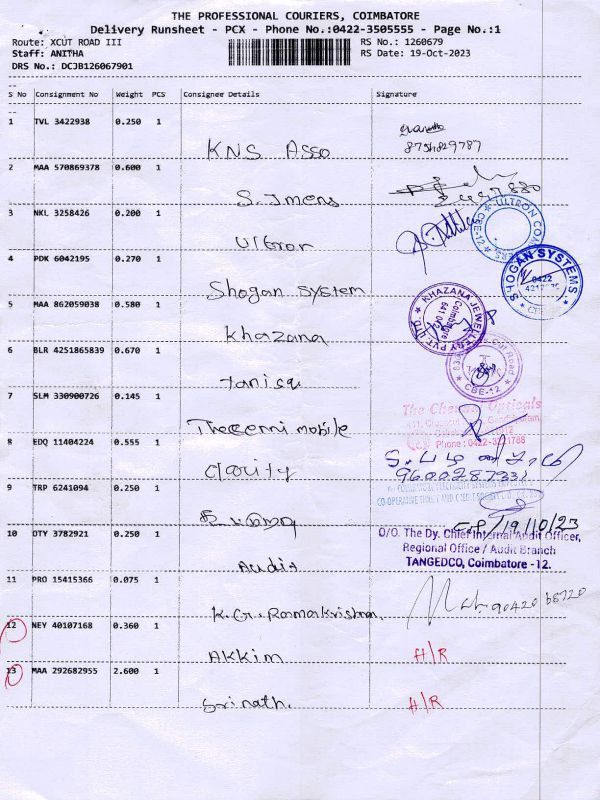 THE PROFESSIONAL COURIERS, COIMBATORE
Delivery Runsheet - PCX - Phone No.:0422-3505555 - Page No.:1
Route: XCUT ROAD III RS No.: 1260679
Staff: ANITHA RS Date: 19-Oct-2023
DRS No.: DCJB126067901
S No Consignment No Weight PCS Consignee Details Signature
1 TVL 3422938 0.250 1
KNS Asso 8754829787
2 MAA 570869378 0.600 1
S. Imens
3 NKL 3258426 0.200 1
Ultron
ULTRON CBE-12
4 PDK 6042195 0.270 1
Shogan System
SHOGAN SYSTEMS 0422
5 MAA 862059038 0.580 1
Khazana
KHAZANA JEWELLERY PVT. Coimbatore
6 BLR 4251865839 0.670 1
Tanisq
CBE-12
7 SLM 330900726 0.145 1
Thecenni mobile
The Chennai Opticals
Phone : 0422-
8 EDQ 11404224 0.555 1
Clarity
9600287331
9 TRP 6241094 0.250 1
CO-OPERATIVE THRIFT AND CREDIT SOCIETY LTD
10 DTY 3782921 0.250 1
19/10/23
O/O. The Dy. Chief Internal Audit Officer,
Regional Office / Audit Branch
TANGEDCO, Coimbatore - 12.
Audit
11 PRO 15415366 0.075 1
K.G. Ramakrishnan
12 NEY 40107168 0.360 1
Akkim H/R
13 MAA 292682955 2.600 1
Srinath. H/R